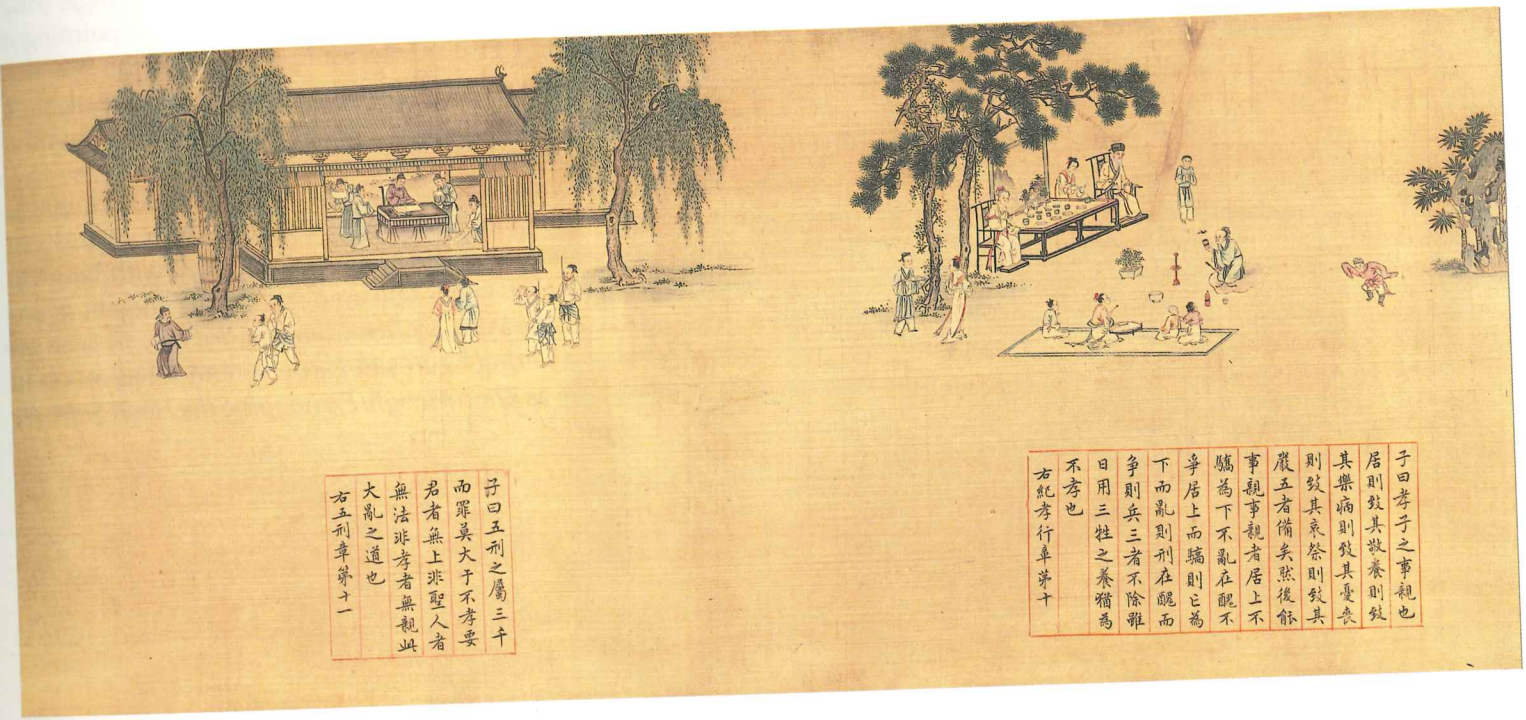 子曰孝子之事親也
居則致其敬養則致
其樂病則致其憂喪
則致其哀祭則致其
嚴五者備矣然後能
事親事親者居上不
驕為下不亂在醜不
爭居上而驕則亡為
下而亂則刑在醜而
争則兵三者不除雖
日用三牲之養猶為
不孝也
右紀孝行章苐十
子曰五刑之屬三千
而罪莫大于不孝要
君者無上非聖人者
無法非孝者無親此
大亂之道也
右五刑章苐十一